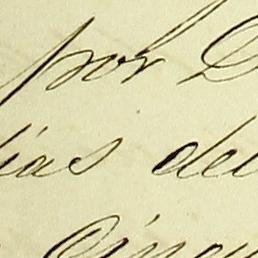 por D
ias del
Cincu